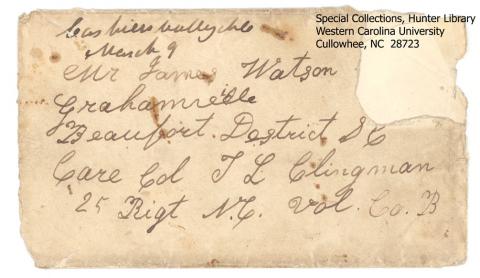 Special Collections, Hunter Library
Western Carolina University
Cullowhee, NC 28723
March 9
Mr James Watson
Grahamville
Beaufort District S C
Care Col T L Clingman
25 Rigt N.C. Vol. Co. B